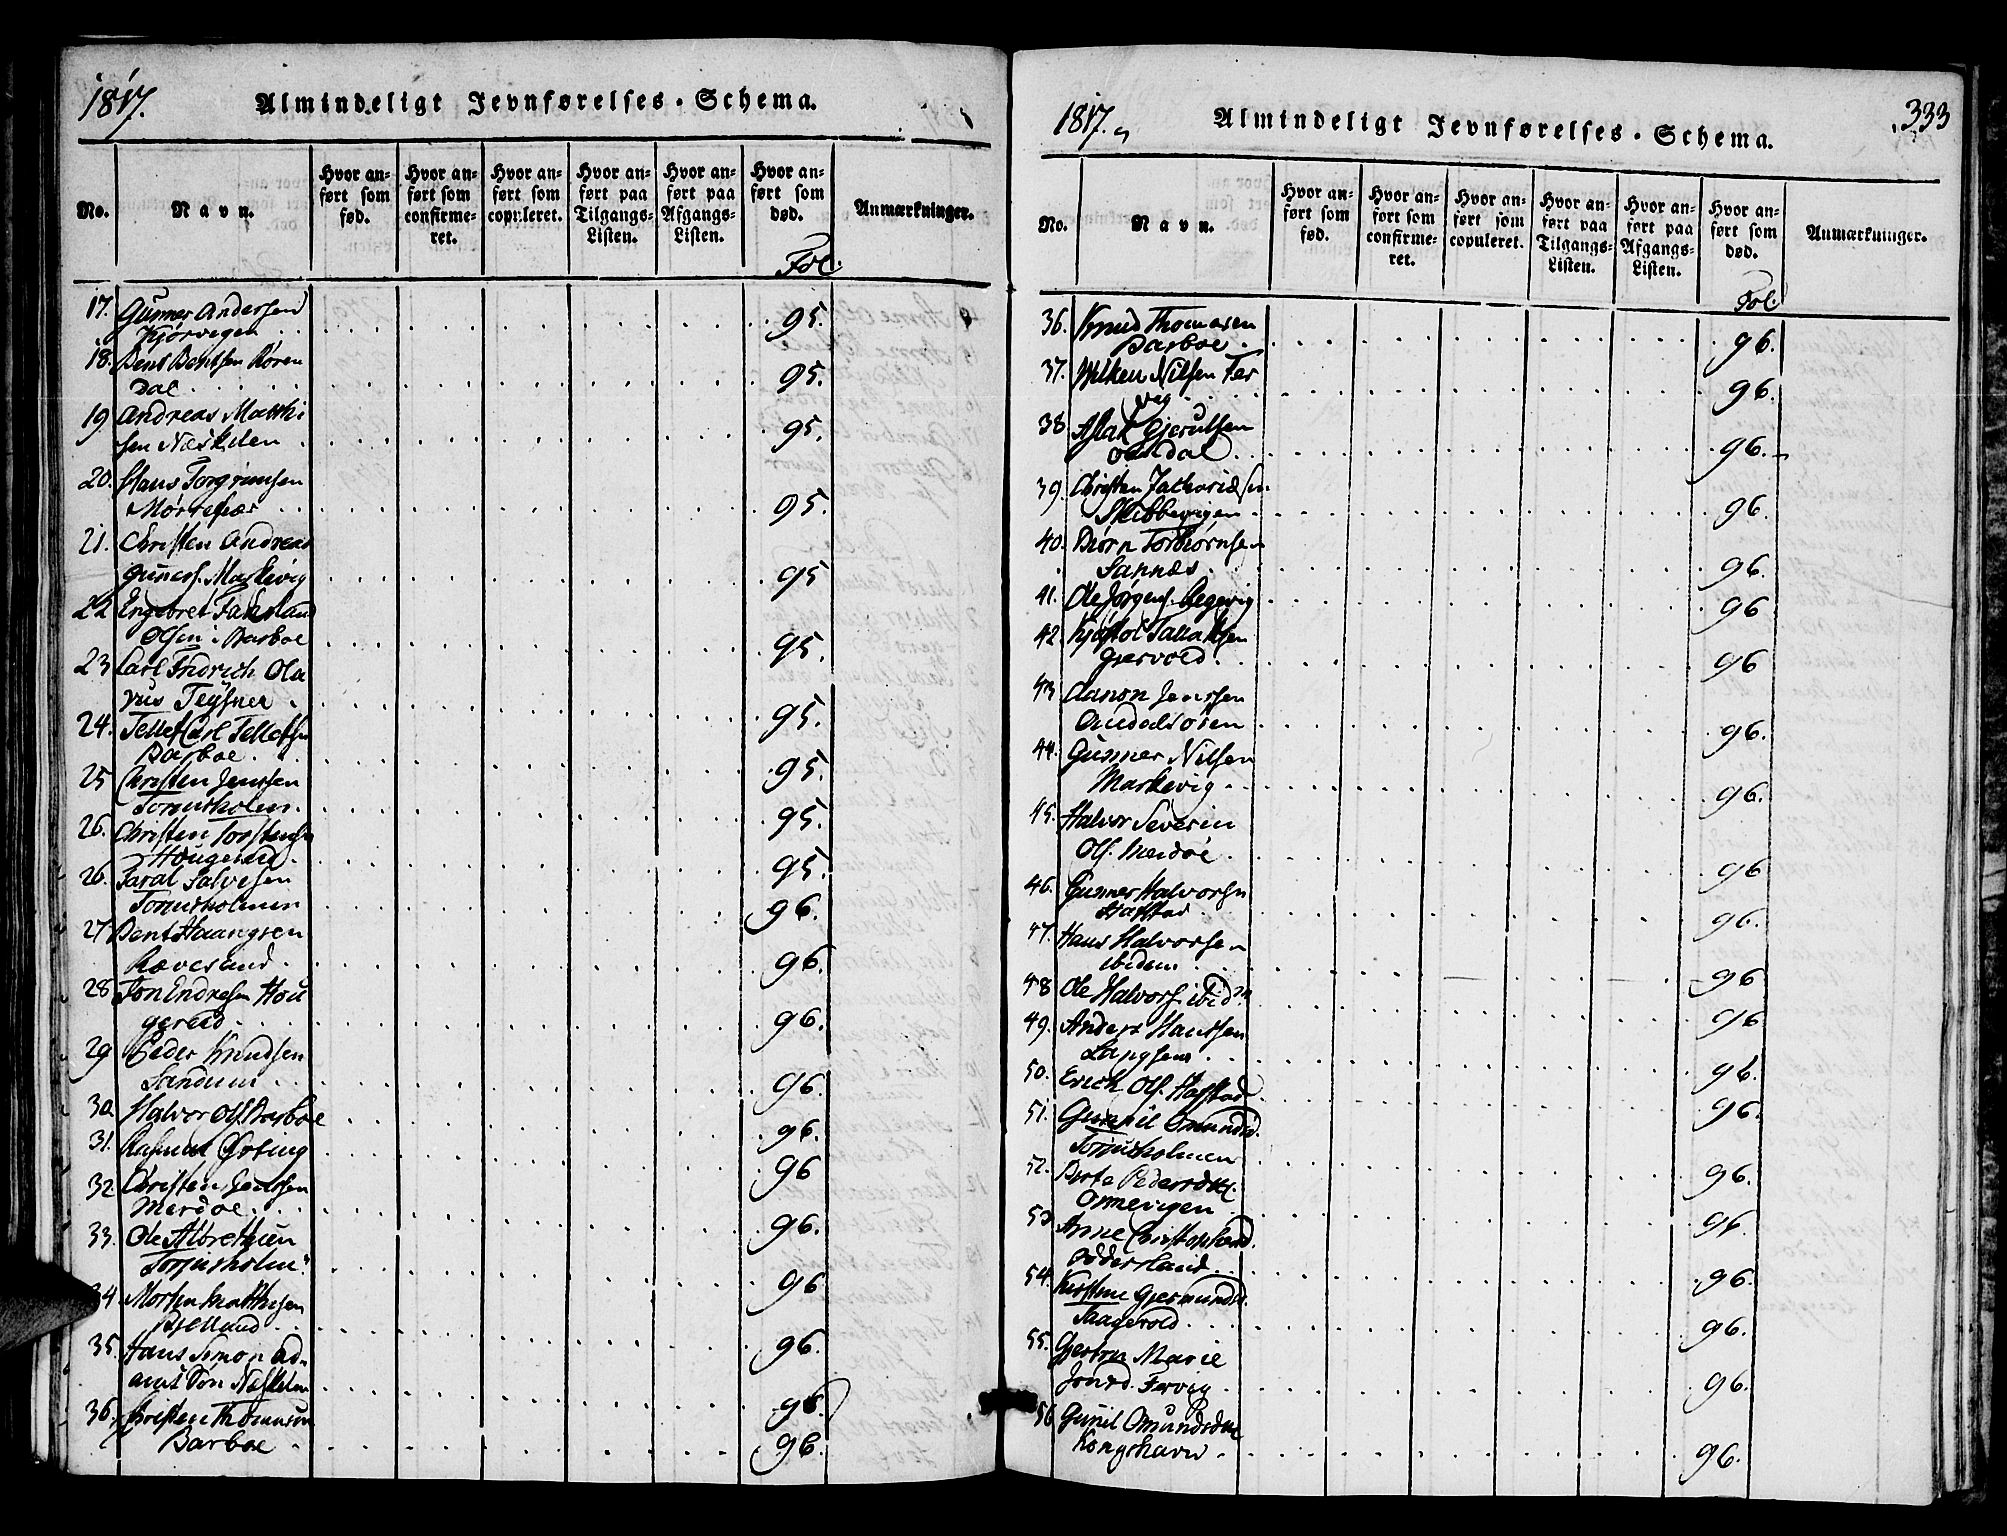 1817.
Almindeligt Jevnførelses-Schema.
No.
Navn.
Hvor an-
ført som
fød.
Hvor an-
ført som
confirme-
ret.
Hvor an-
ført som
copuleret.
Hvor an-
ført paa
Tilgangs-
Listen.
Hvor an-
ført paa
Afgangs-
Listen.
Hvor an-
ført som
død.
Anmærkninger.
Fol.
17. Gunner Andersen
Kjørvegen 95.
18. Bent Bentsen Røren
Dal 95.
19 Andreas Matthi
sen Næskilen 95.
20. Hans Torgrimsen
Mørrefiær 95.
21. Christen Andreas
Guners. Markevig 95
22 Engebret Falkland
Olsen i Barboe 95.
23 Carl Fridrich Ola
vus Teysner 95.
24. Tellef Carl Tellefsn
Barboe 95.
25 Christen Jenssen
Torjusholm. 95.
26. Christen Torstensn
Hougerud 95.
26. Taral Salvesen
Torjusholmen 96.
27 Bent Haangsen
Rævesand. 96.
28 Jon Endresen Hou
gerud 96.
29 Peder Knudsen
Sandum 96.
30 Halvor Ols. Barboe 96.
31. Rasmus Ørbing 96
32. Christen Jenssen
Merdøe 96.
33. Ole Albrethsen
Torjusholm 96
34 Morten Matthisen
Bjelland 96.
35. Hans Simon Ad-
amssøn Næskilen 96.
36. Christen Thomassn
Barboe 96.
1817.
Almindeligt Jevnførelses-Schema.
333
No.
Navn.
Hvor an-
ført som
fød.
Hvor an-
ført som
confirme-
ret.
Hvor an-
ført som
copuleret.
Hvor an-
ført paa
Tilgangs-
Listen.
Hvor an-
ført paa
Afgangs-
Listen.
Hvor an-
ført som
død.
Anmærkninger.
Fol.
36. Knud Thomasen
Barboe 96.
37. Wilken Nilsen Fer
vig 96.
38 Aslak Gjerulsen
Omdal 96.
39. Christen Zachariæsen
Skibbevigen 96.
40. Biørn Torbiørnsen
Sannæs 96.
41. Ole Jørgens. Gegevig 96
42. Kjøstol Tallaksen
Gjervold 96
43 Aanon Jenssen
Omdalsøren 96.
44. Gunner Nilsen
Markevig 96.
45. Halvor Severin
Ols. Merdøe 96
46. Gunner Halvorsn
Hafstad 96.
47. Hans Halvorsen
ibidem 96
48 Ole Halvors. ibidm 96
49. Anders Hanssen
Langsem 96.
50. Erich Ols. Hafstad 96.
51. Gunnil Omundsd.
Torjusholmen 96.
52. Berte Pedersdtt.
Ormevigen 96.
53 Anne Christophersd.
Odderland 96.
54. Kirstine Gjermundsd.
Saagevold 96.
55. Gjertrue Marie
Jonsd. Fervig 96.
56 Gunil Omundsdtt
Kongshavn 96.